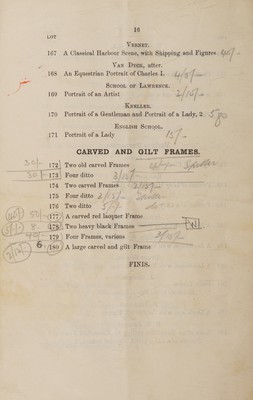 16
LOT
VERNET.
167 A Classical Harbour Scene, with Shipping and Figures
VAN DYCK, after.
168 An Equestrian Portrait of Charles I. 4/5/-
SCHOOL OF LAWRENCE.
169 Portrait of an Artist 2/15/-
KNELLER.
170 Portrait of a Gentleman and Portrait of a Lady, 2
ENGLISH SCHOOL.
171 Portrait of a Lady 15/-
CARVED AND GILT FRAMES.
172 Two old carved Frames
30/- 173 Four ditto 3/12/-
174 Two carved Frames
175 Four ditto
176 Two ditto
50/- 177 A carved red lacquer Frame
8 178 Two heavy black Frames
179 Four Frames, various
6 180 A large carved and gilt Frame
FINIS.